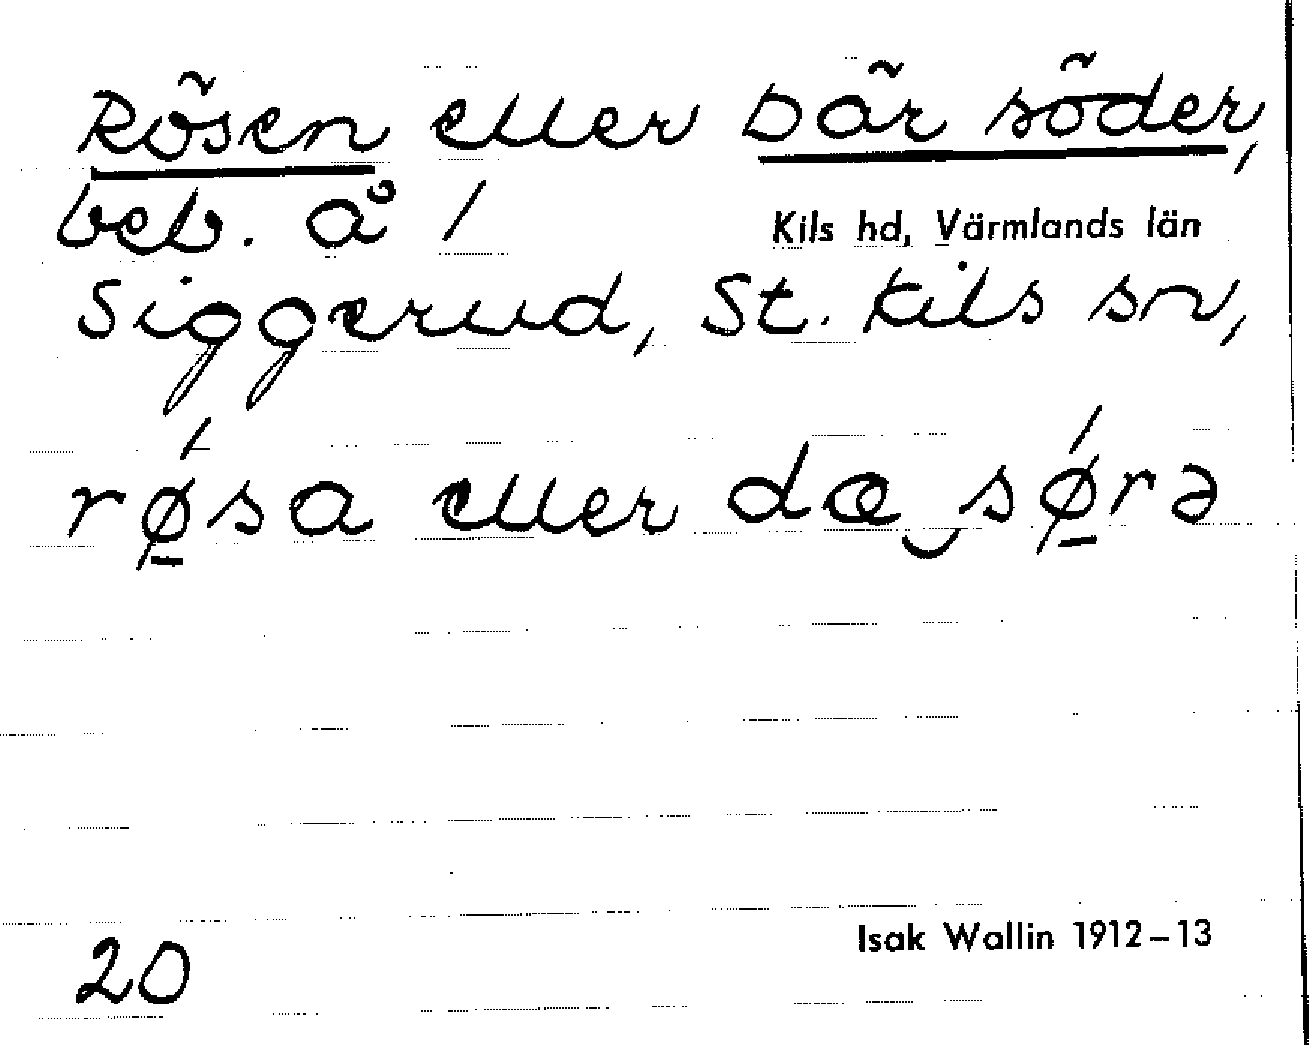 Rösen eller Där söder,
beb. å /
Kils hd, Värmlands län
Siggerud, St. Kils sn,
rǿ̲sa eller dæ‿sǿ̲rə
20
Isak Wallin 1912–13